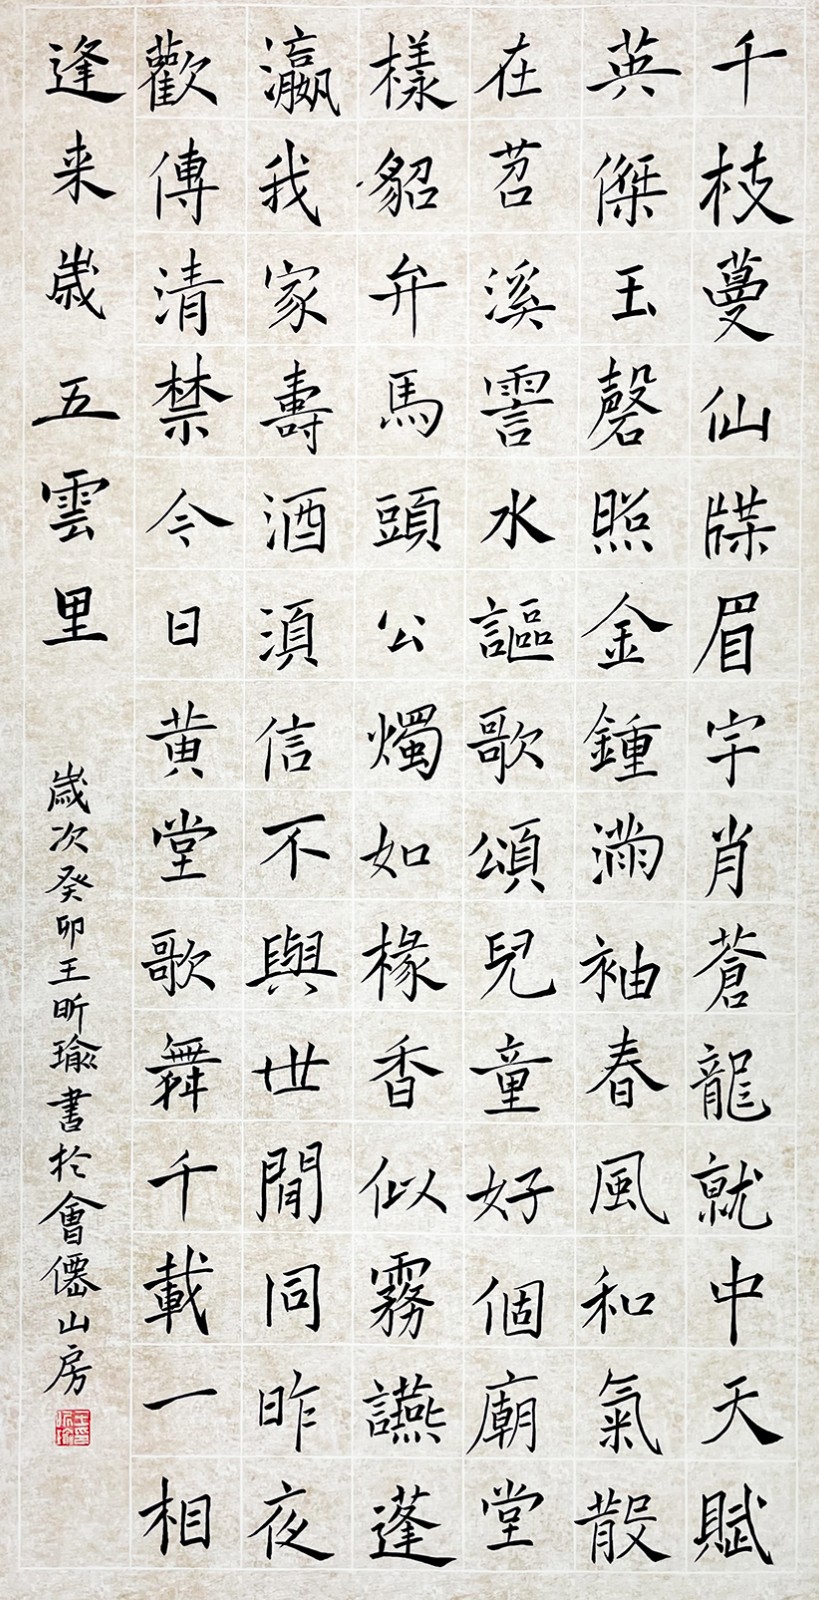 千枝蔓仙牒眉宇肖蒼龍就中天賦
英傑玉磬照金鍾滿袖春風和氣散
在苕溪霅水謳歌頌兒童好個廟堂
樣貂弁馬頭公燭如椽香似霧讌蓬
瀛我家壽酒須信不與世間同昨夜
歡傳清禁今日黄堂歌舞千載一相
逢来歲五雲里
歲次癸卯王昕瑜書於會僊山房